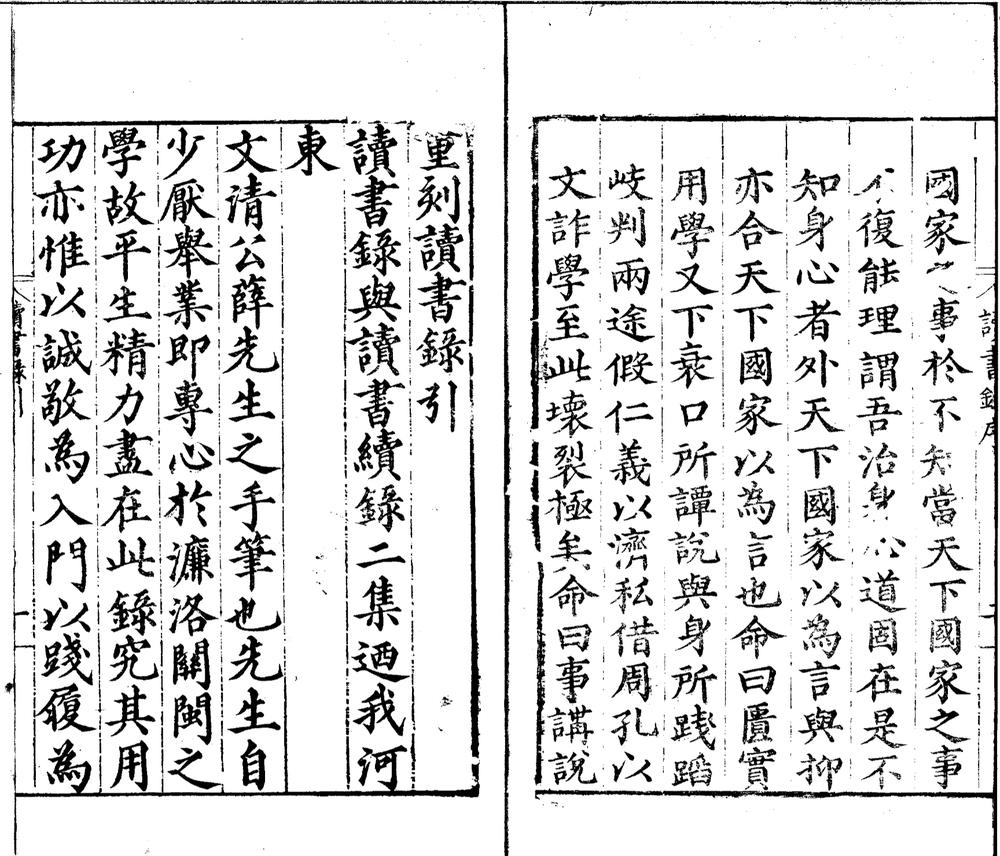 國家之事於不知當天下國家之事
不復能理謂吾治身心道固在是不
知身心者外天下國家以為言與抑
亦合天下國家以為言也命曰匱實
用學又下衰口所譚說與身所踐蹈
岐判兩途假仁義以濟私借周孔以
文詐學至此壞裂極矣命曰事講說
讀書錄序
重刻讀書錄引
讀書錄與讀書續錄二集迺我河
東
文清公薛先生之手筆也先生自
少厭舉業即專心於濂洛關閩之
學故平生精力盡在此錄究其用
功亦惟以誠敬為入門以踐履為
讀書錄引
一